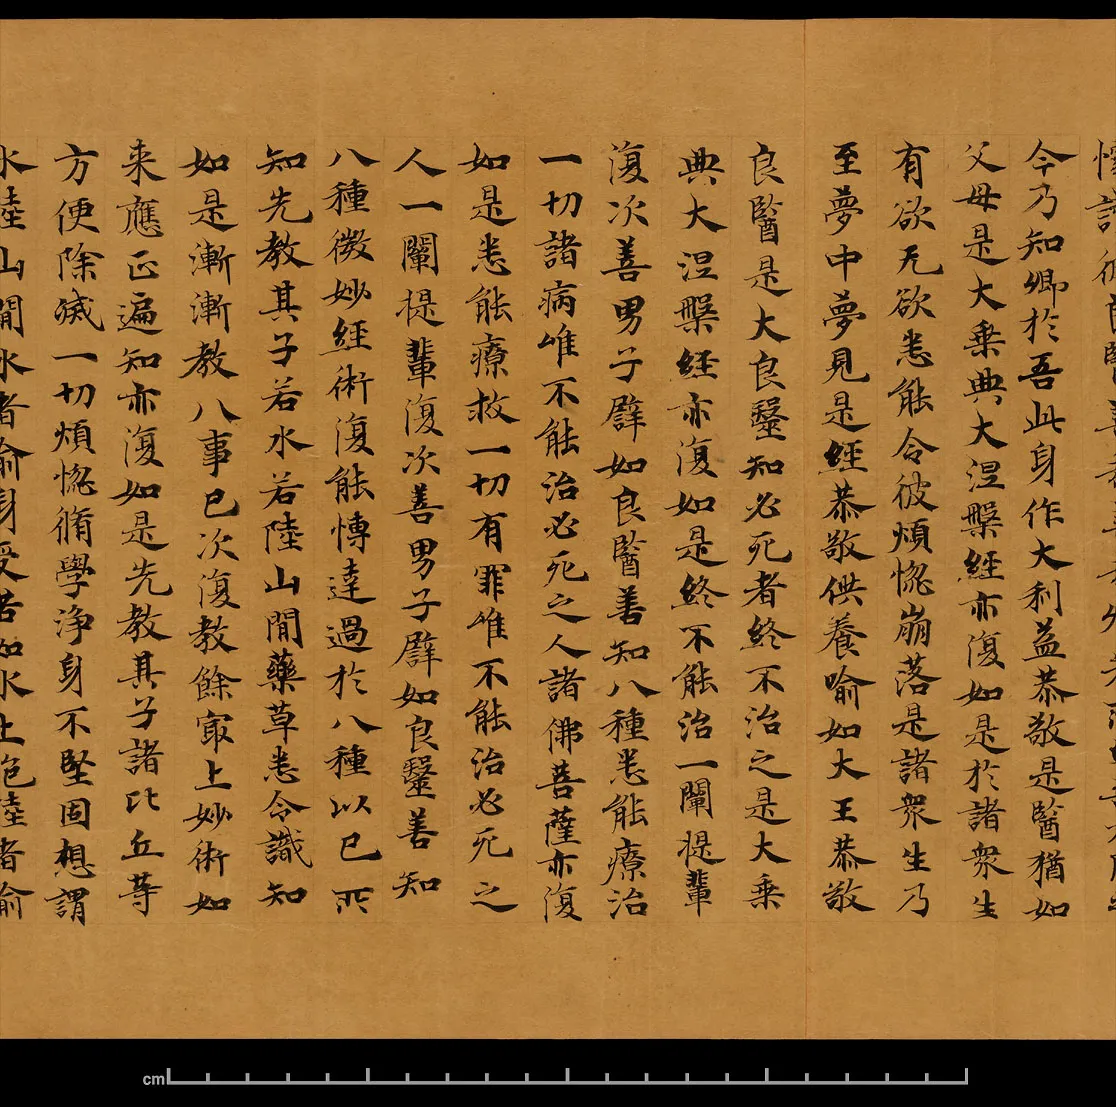 今乃知卿於吾此身作大利益恭敬是醫猶如
父母是大乗典大涅槃經亦復如是於諸衆生
有欲无欲悉能令彼煩惚崩落是諸衆生乃
至夢中夢見是經恭敬供養喻如大王恭敬
良醫是大良毉知必死者終不治之是大乗
典大涅槃經亦復如是終不能治一闡提輩
復次善男子譬如良醫善知八種悉能療治
一切諸病唯不能治必死之人諸佛菩薩亦復
如是悉能療救一切有罪唯不能治必死之
人一闡提輩復次善男子譬如良毉善知
八種微妙經術復能愽達過於八種以已所
知先教其子若水若陸山閒藥草悉令識知
如是漸漸教八事已次復教餘㝡上妙術如
来應正遍知亦復如是先教其子諸比丘等
方便除滅一切煩惚脩學浄身不堅固想謂
水陸山閒水者喻身受苦如水上泡陸者喻